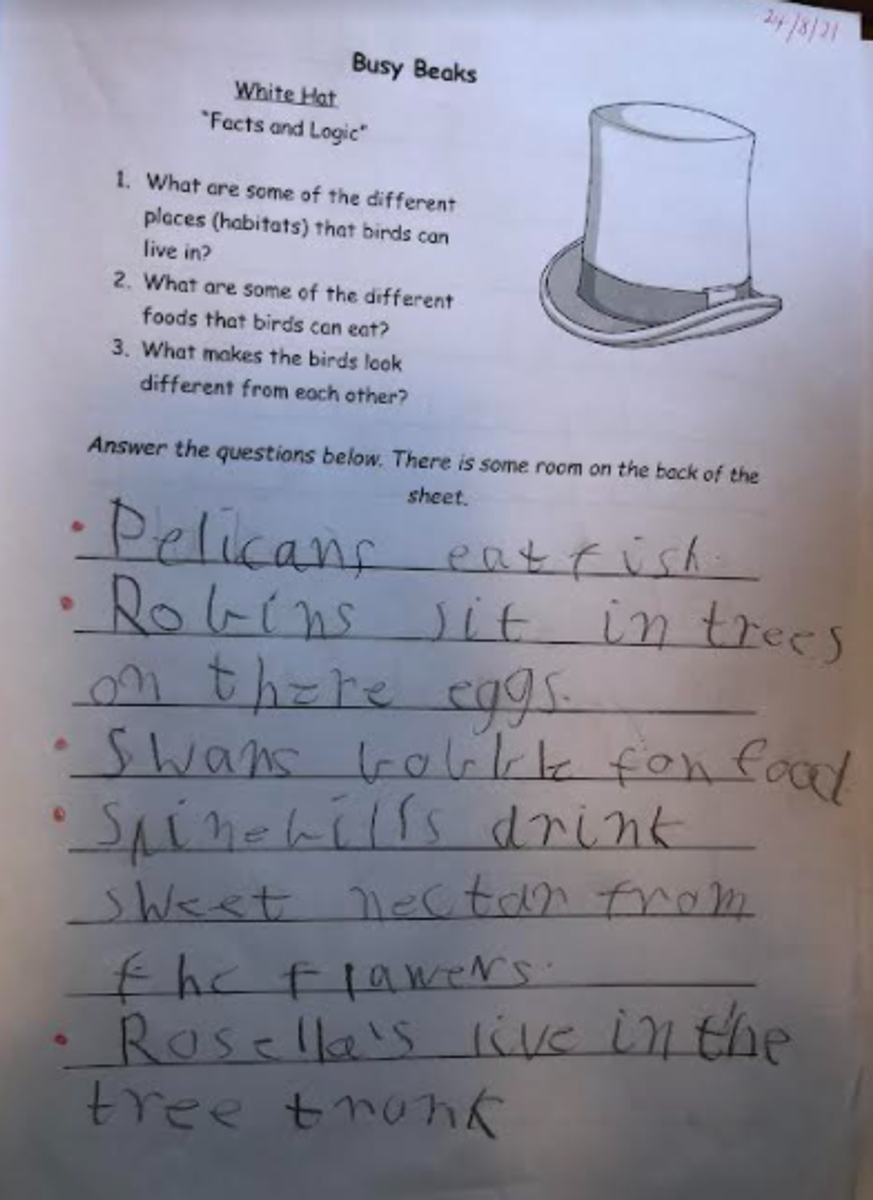 24/8/21
Busy Beaks
White Hat
"Facts and Logic"
1. What are some of the different
places (habitats) that birds can
live in?
2. What are some of the different
foods that birds can eat?
3. What makes the birds look
different from each other?
Answer the questions below. There is some room on the back of the
sheet.
• Pelicans eat fish.
• Robins sit in trees
on there eggs.
• Swans bobble for food
• Spinebills drink
sweet nectar from
the flawers.
• Rosella's live in the
tree trunk